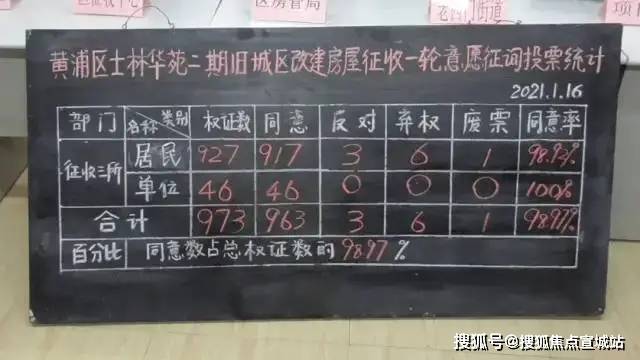 区房管局
老西门街道
黄浦区士林华苑二期旧城区改建房屋征收一轮意愿征询投票统计
2021.1.16
部门 名称 类别 权证数 同意 反对 弃权 废票 同意率
征收三所 居民 927 917 3 6 1 98.92%
单位 46 46 0 0 0 100%
合计 973 963 3 6 1 98.97%
百分比 同意数占总权证数的 98.97 %
搜狐号@搜狐焦点宣城站